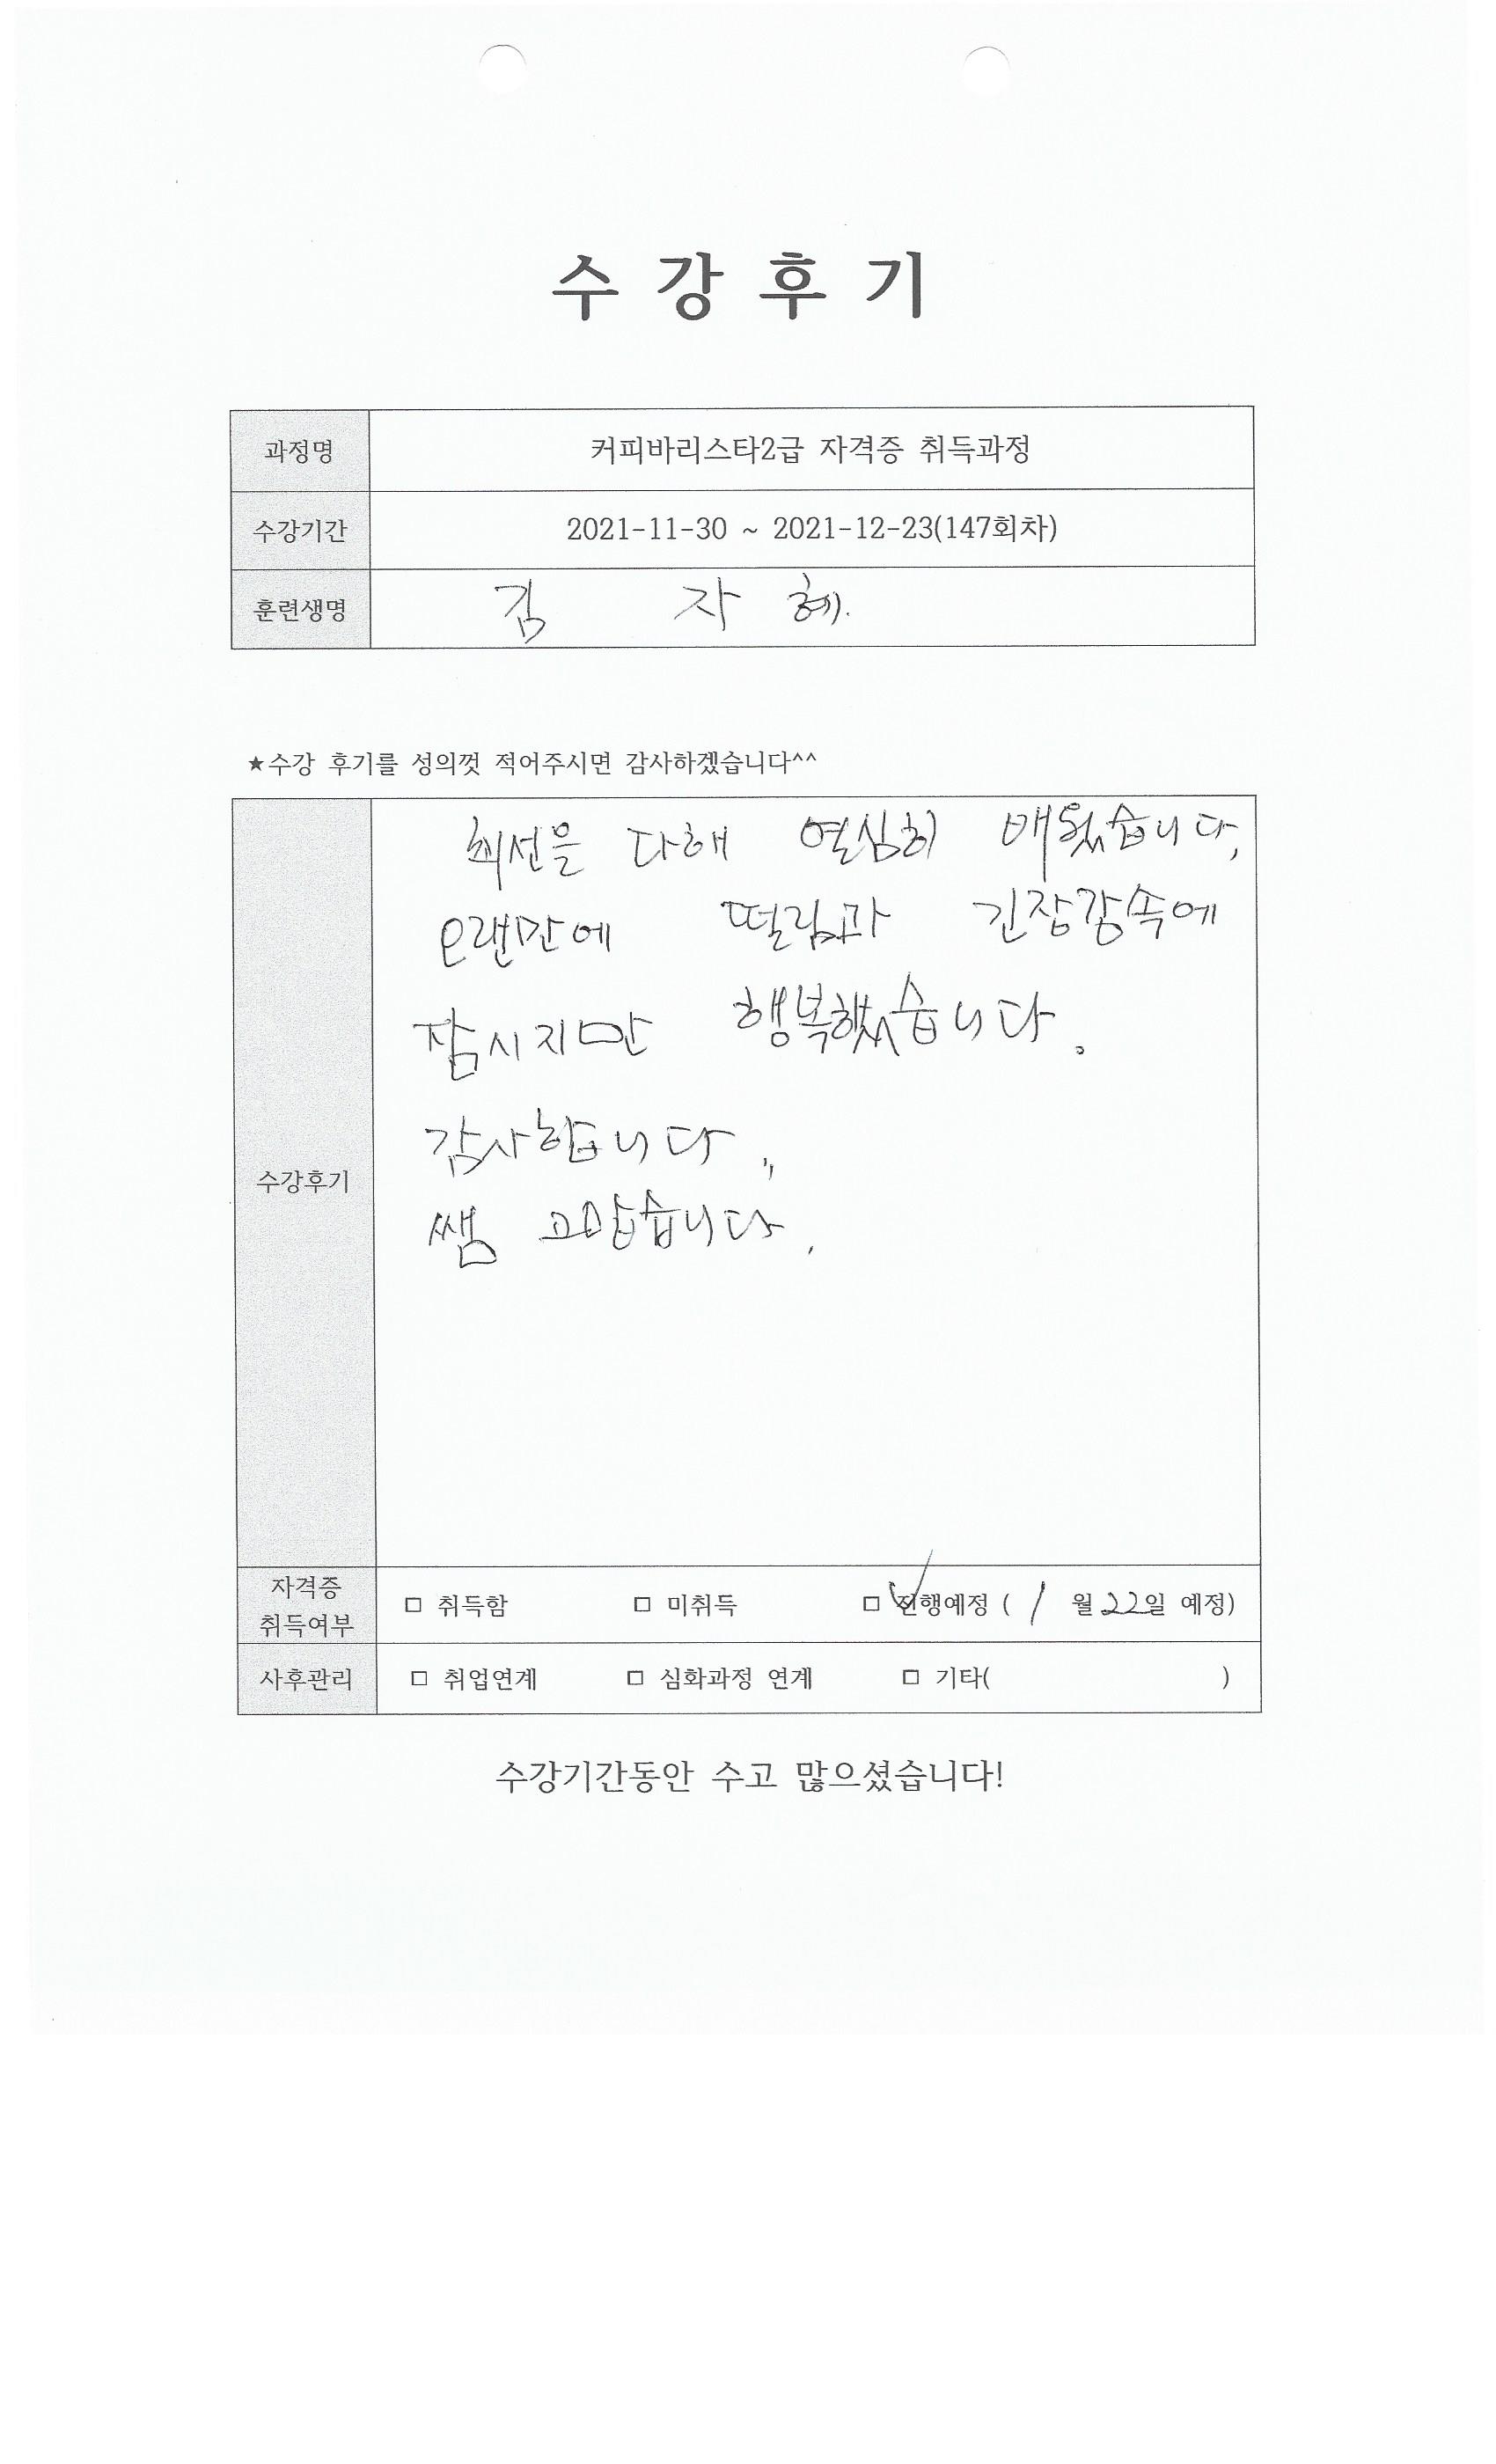 수 강 후 기
과정명 커피바리스타2급 자격증 취득과정
수강기간 2021-11-30 ~ 2021-12-23(147회차)
훈련생명 김 자 혜.
★수강 후기를 성의껏 적어주시면 감사하겠습니다^^
수강후기
최선을 다해 열심히 배웠습니다,
오랜만에 떨림과 긴장감속에
잠시지만 행복했습니다.
감사합니다,,
쌤 고맙습니다.
자격증
취득여부
□ 취득함 □ 미취득 □ 진행예정 ( 1 월 22일 예정)
사후관리 □ 취업연계 □ 심화과정 연계 □ 기타( )
수강기간동안 수고 많으셨습니다!